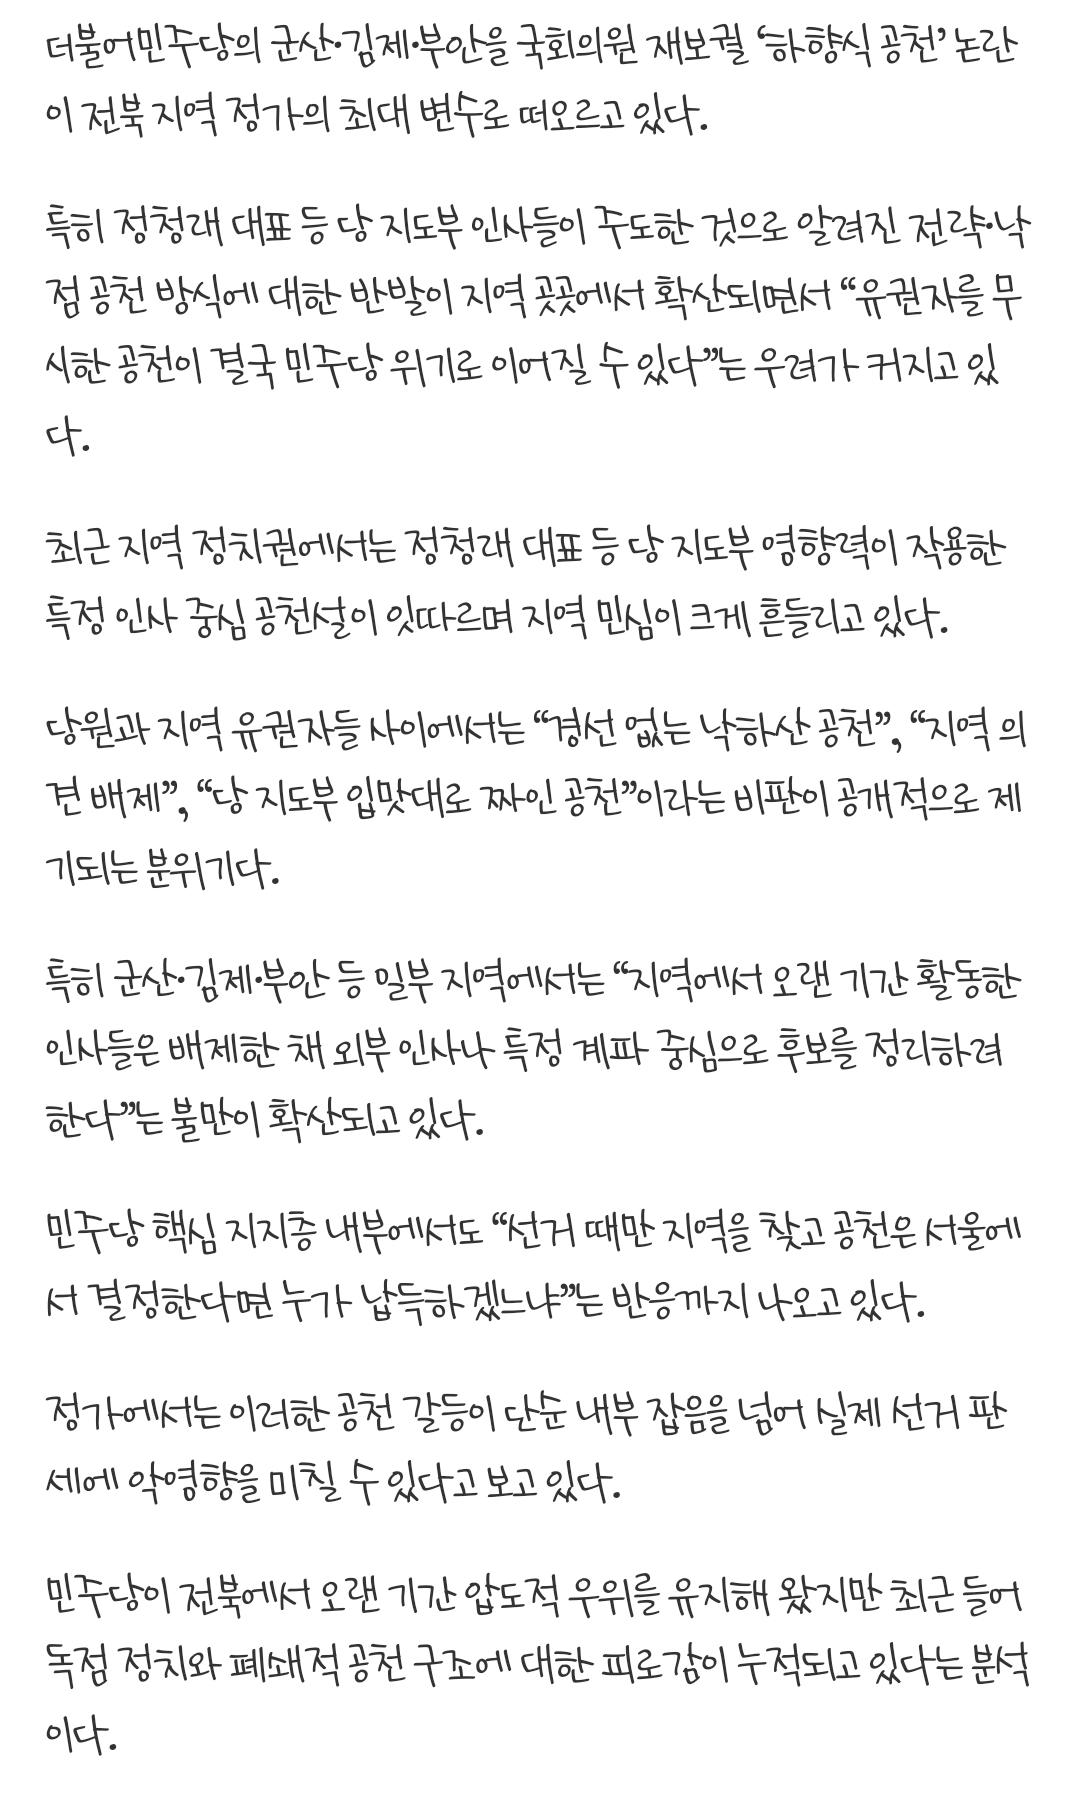 더불어민주당의 군산·김제·부안을 국회의원 재보궐 ‘하향식 공천’ 논란
이 전북 지역 정가의 최대 변수로 떠오르고 있다.
특히 정청래 대표 등 당 지도부 인사들이 주도한 것으로 알려진 전략·낙
점 공천 방식에 대한 반발이 지역 곳곳에서 확산되면서 “유권자를 무
시한 공천이 결국 민주당 위기로 이어질 수 있다”는 우려가 커지고 있
다.
최근 지역 정치권에서는 정청래 대표 등 당 지도부 영향력이 작용한
특정 인사 중심 공천설이 잇따르며 지역 민심이 크게 흔들리고 있다.
당원과 지역 유권자들 사이에서는 “경선 없는 낙하산 공천”, “지역 의
견 배제”, “당 지도부 입맛대로 짜인 공천”이라는 비판이 공개적으로 제
기되는 분위기다.
특히 군산·김제·부안 등 일부 지역에서는 “지역에서 오랜 기간 활동한
인사들은 배제한 채 외부 인사나 특정 계파 중심으로 후보를 정리하려
한다”는 불만이 확산되고 있다.
민주당 핵심 지지층 내부에서도 “선거 때만 지역을 찾고 공천은 서울에
서 결정한다면 누가 납득하겠느냐”는 반응까지 나오고 있다.
정가에서는 이러한 공천 갈등이 단순 내부 잡음을 넘어 실제 선거 판
세에 악영향을 미칠 수 있다고 보고 있다.
민주당이 전북에서 오랜 기간 압도적 우위를 유지해 왔지만 최근 들어
독점 정치와 폐쇄적 공천 구조에 대한 피로감이 누적되고 있다는 분석
이다.